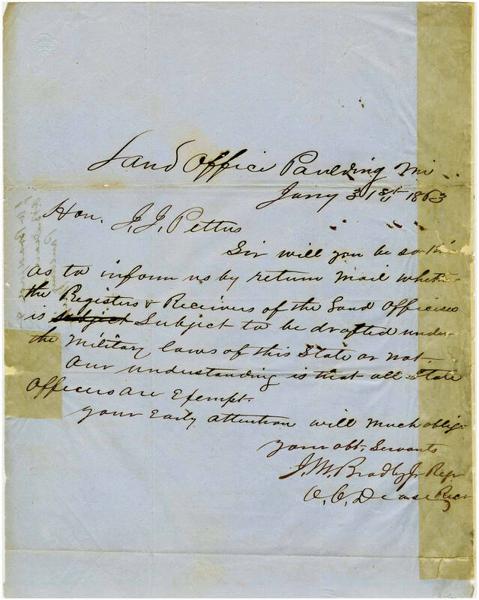 Land Office Paulding Mi
Jany 31st 1863
Hon. J. J. Pettus
Sir will you be so
as to inform us by return mail
the Registers & Receivers of the Land Offices
is subject Subject to be drafted under
the Military laws of this State or not.
Our understanding is that all State
Officers are Exempt.
your Early attention will much oblige
your obt. Servants
J. M. Bradly Jr
O. C. Dease Recr